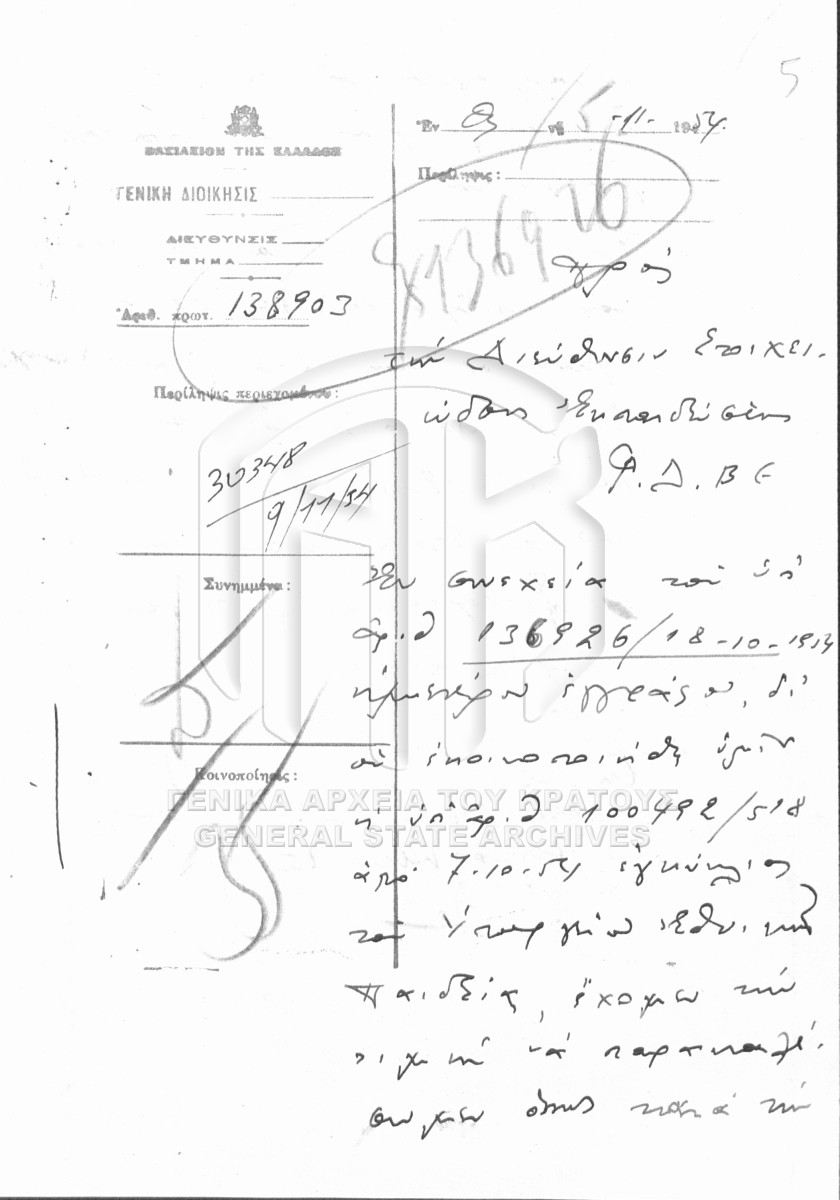 5
ΒΑΣΙΛΕΙΟΝ ΤΗΣ ΕΛΛΑΔΟΣ
ΓΕΝΙΚΗ ΔΙΟΙΚΗΣΙΣ
ΔΙΕΥΘΥΝΣΙΣ
ΤΜΗΜΑ
Ἀριθ. πρωτ. 138903
Περίληψις περιεχομένου:
30348
9/11/54
Συνημμένα:
Κοινοποίησις:
Ἐν Θ τῇ 5 -11- 1954.
Περίληψις:
136926
Πρός
τήν Διεύθυνσιν Στοιχει-
ώδους Ἐκπαιδεύσεως
Γ.Δ.Β.Ε
Ἐν συνεχείᾳ τοῦ ὑπ'
ἀριθ 136926/18-10-1954
ἡμετέρου ἐγγράφου, δι'
οὗ ἐκοινοποιήθη ὑμῖν
ἡ ὑπ' ἀριθ 100492/518
ἀπό 7-10-54 ἐγκύκλιος
τοῦ Ὑπουργείου Ἐθνικῆς
Παιδείας, ἔχομεν τήν
τιμήν νά παρακαλέ-
σωμεν ὅπως κατά τήν
ΓΕΝΙΚΑ ΑΡΧΕΙΑ ΤΟΥ ΚΡΑΤΟΥΣ
GENERAL STATE ARCHIVES